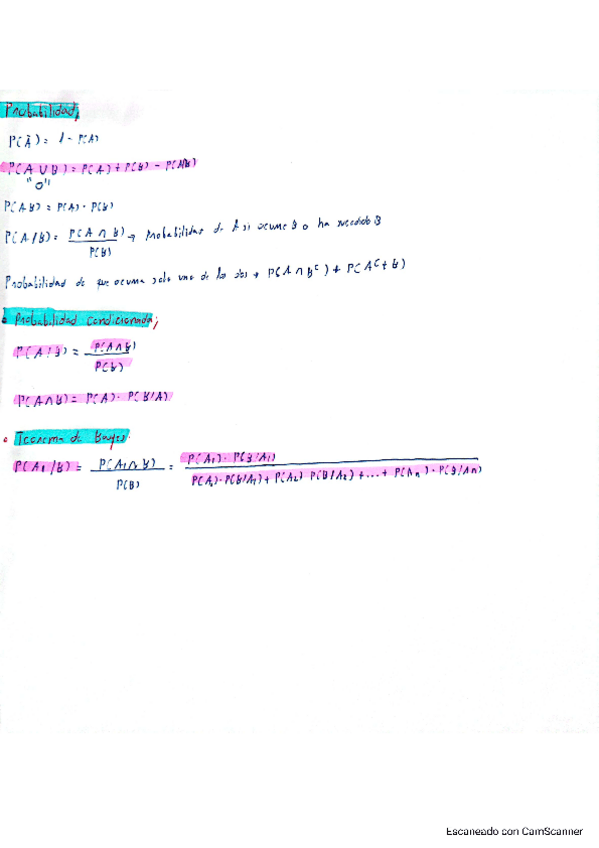 Probabilidad;
P(Ā) = 1 - P(A)
P(A ∪ B) = P(A) + P(B) - P(A∩B)
"O"
P(A B) = P(A) · P(B)
P(A/B) = P(A ∩ B) / P(B) → Probabilidad de A si ocurre B o ha sucedido B
Probabilidad de que ocurra solo uno de los dos → P(A ∩ Bᶜ) + P(Aᶜ + B)
Probabilidad condicionada;
P(A/B) = P(A∩B) / P(B)
P(A∩B) = P(A) · P(B/A)
Teorema de Bayes.
P(A₁/B) = P(A₁∩B) / P(B) = P(A₁) · P(B/A₁) / P(A₁) · P(B/A₁) + P(A₂) · P(B/A₂) + ... + P(Aₙ) · P(B/Aₙ)
Escaneado con CamScanner